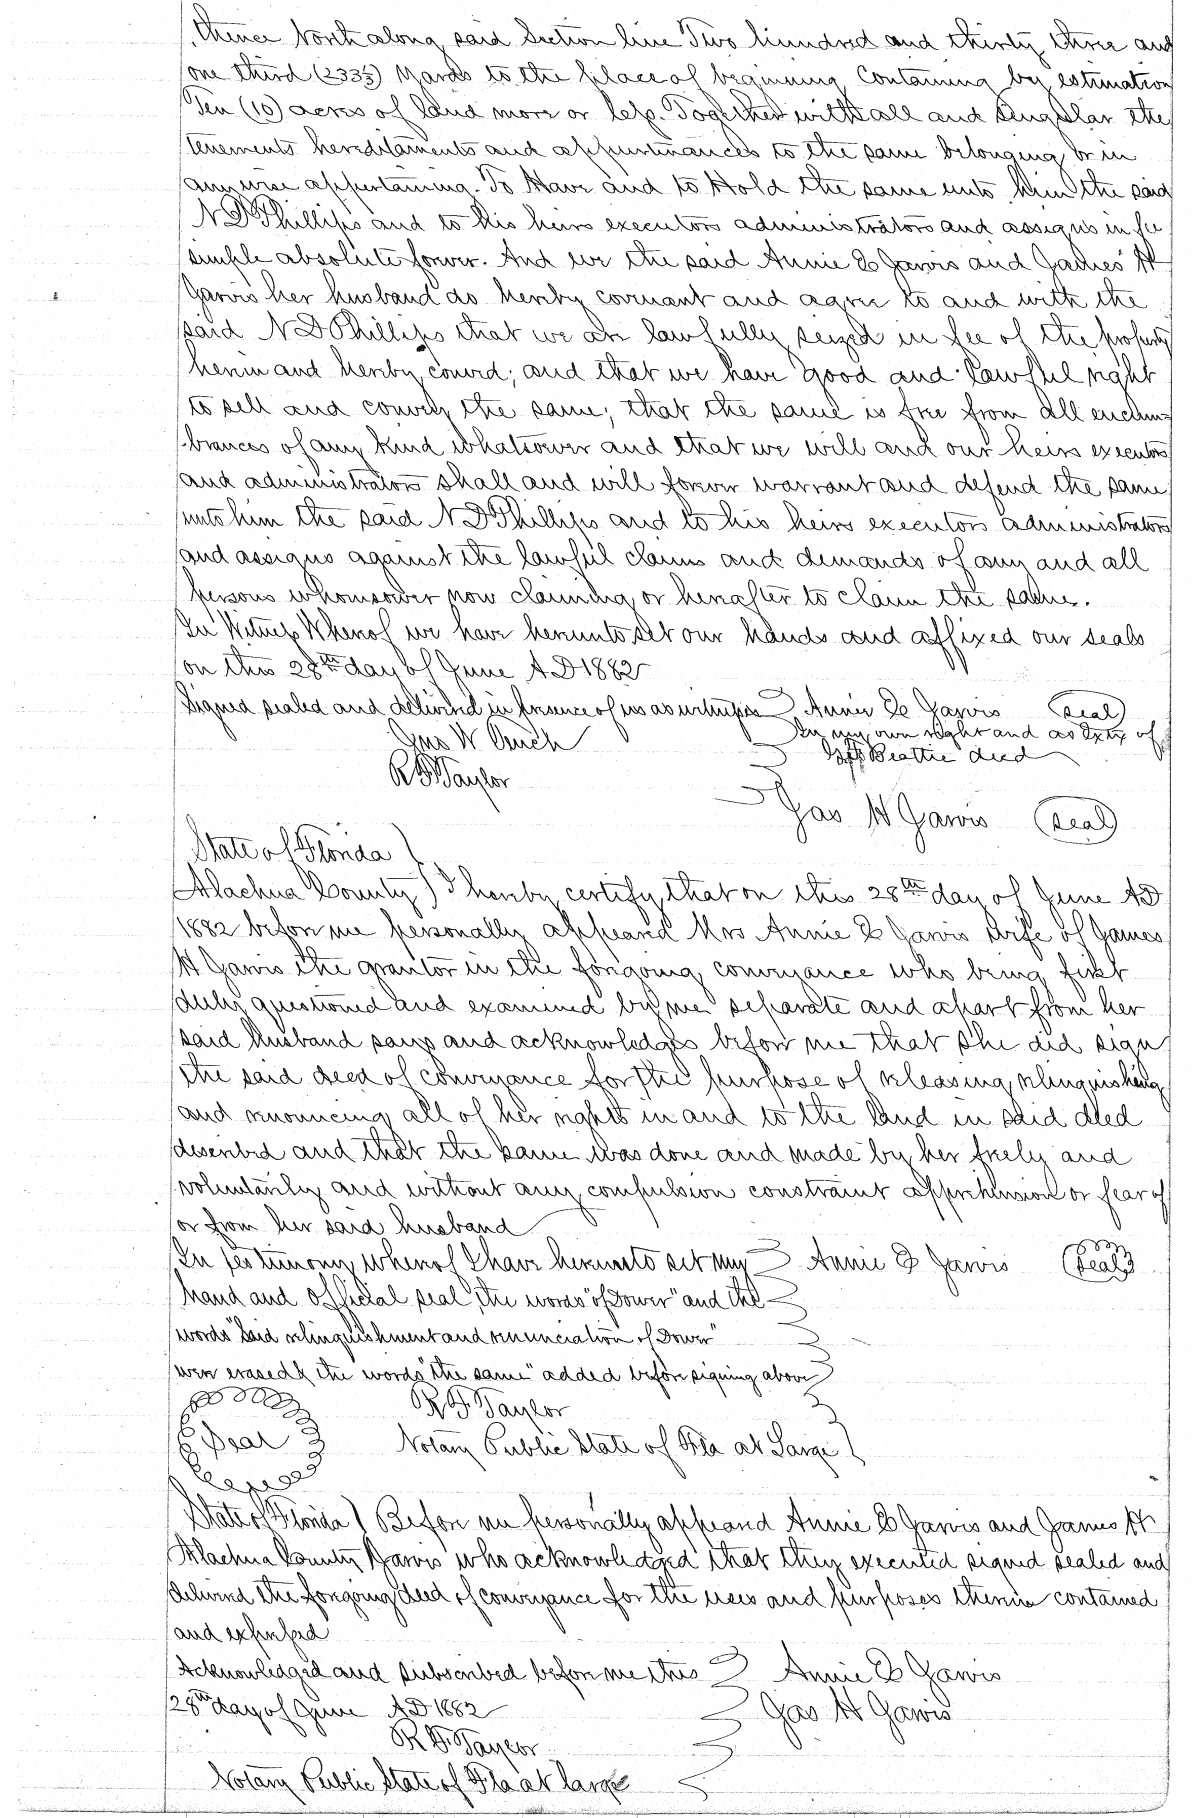 thence North along said Section line Two hundred and thirty three and
one third (233⅓) yards to the place of beginning Containing by estimation
Ten (10) acres of land more or less. Together with all and Singular the
tenements hereditaments and appurtenances to the same belonging or in
anywise appertaining. To Have and to Hold the same unto him the said
N D Phillips and to his heirs executors administrators and assigns in fee
simple absolute forever. And we the said Annie E Jarvis and James H
Jarvis her husband do hereby covenant and agree to and with the
said N D Phillips that we are lawfully seized in fee of the property
herein and hereby conveyed; and that we have good and lawful right
to sell and convey the same; that the same is free from all encum-
brances of any kind whatsoever and that we will and our heirs executors
and administrators shall and will forever warrant and defend the same
unto him the said N D Phillips and to his heirs executors administrators
and assigns against the lawful claims and demands of any and all
persons whomsoever now claiming or hereafter to claim the same.
In Witness Whereof we have hereunto set our hands and affixed our seals
on this 28th day of June A D 1882
Signed sealed and delivered in presence of us as witnesses Annie E Jarvis (seal)
Jno W In my own right and as Extx of
R F Taylor Beattie decd
Jas H Jarvis (seal)
State of Florida
Alachua County I hereby certify that on this 28th day of June A D
1882 before me personally appeared Mrs Annie E Jarvis wife of James
H Jarvis the grantor in the foregoing conveyance who being first
duly questioned and examined by me separate and apart from her
said husband says and acknowledges before me that she did sign
the said deed of conveyance for the purpose of releasing relinquishing
and renouncing all of her rights in and to the land in said deed
described and that the same was done and made by her freely and
voluntarily and without any compulsion constraint apprehension or fear of
or from her said husband
In testimony whereof I have hereunto set my Annie E Jarvis (seal)
hand and official seal, the words "of Dower" and the
words "Said relinquishment and renunciation of Dower"
were erased & the words "the same" added before signing above
R F Taylor
Seal Notary Public State of Fla at Large
State of Florida Before me personally appeared Annie E Jarvis and James H
Alachua County Jarvis who acknowledged that they executed signed sealed and
delivered the foregoing deed of conveyance for the uses and purposes therein contained
and expressed
Acknowledged and subscribed before me this Annie E Jarvis
28th day of June A D 1882 Jas H Jarvis
R F Taylor
Notary Public State of Fla at large